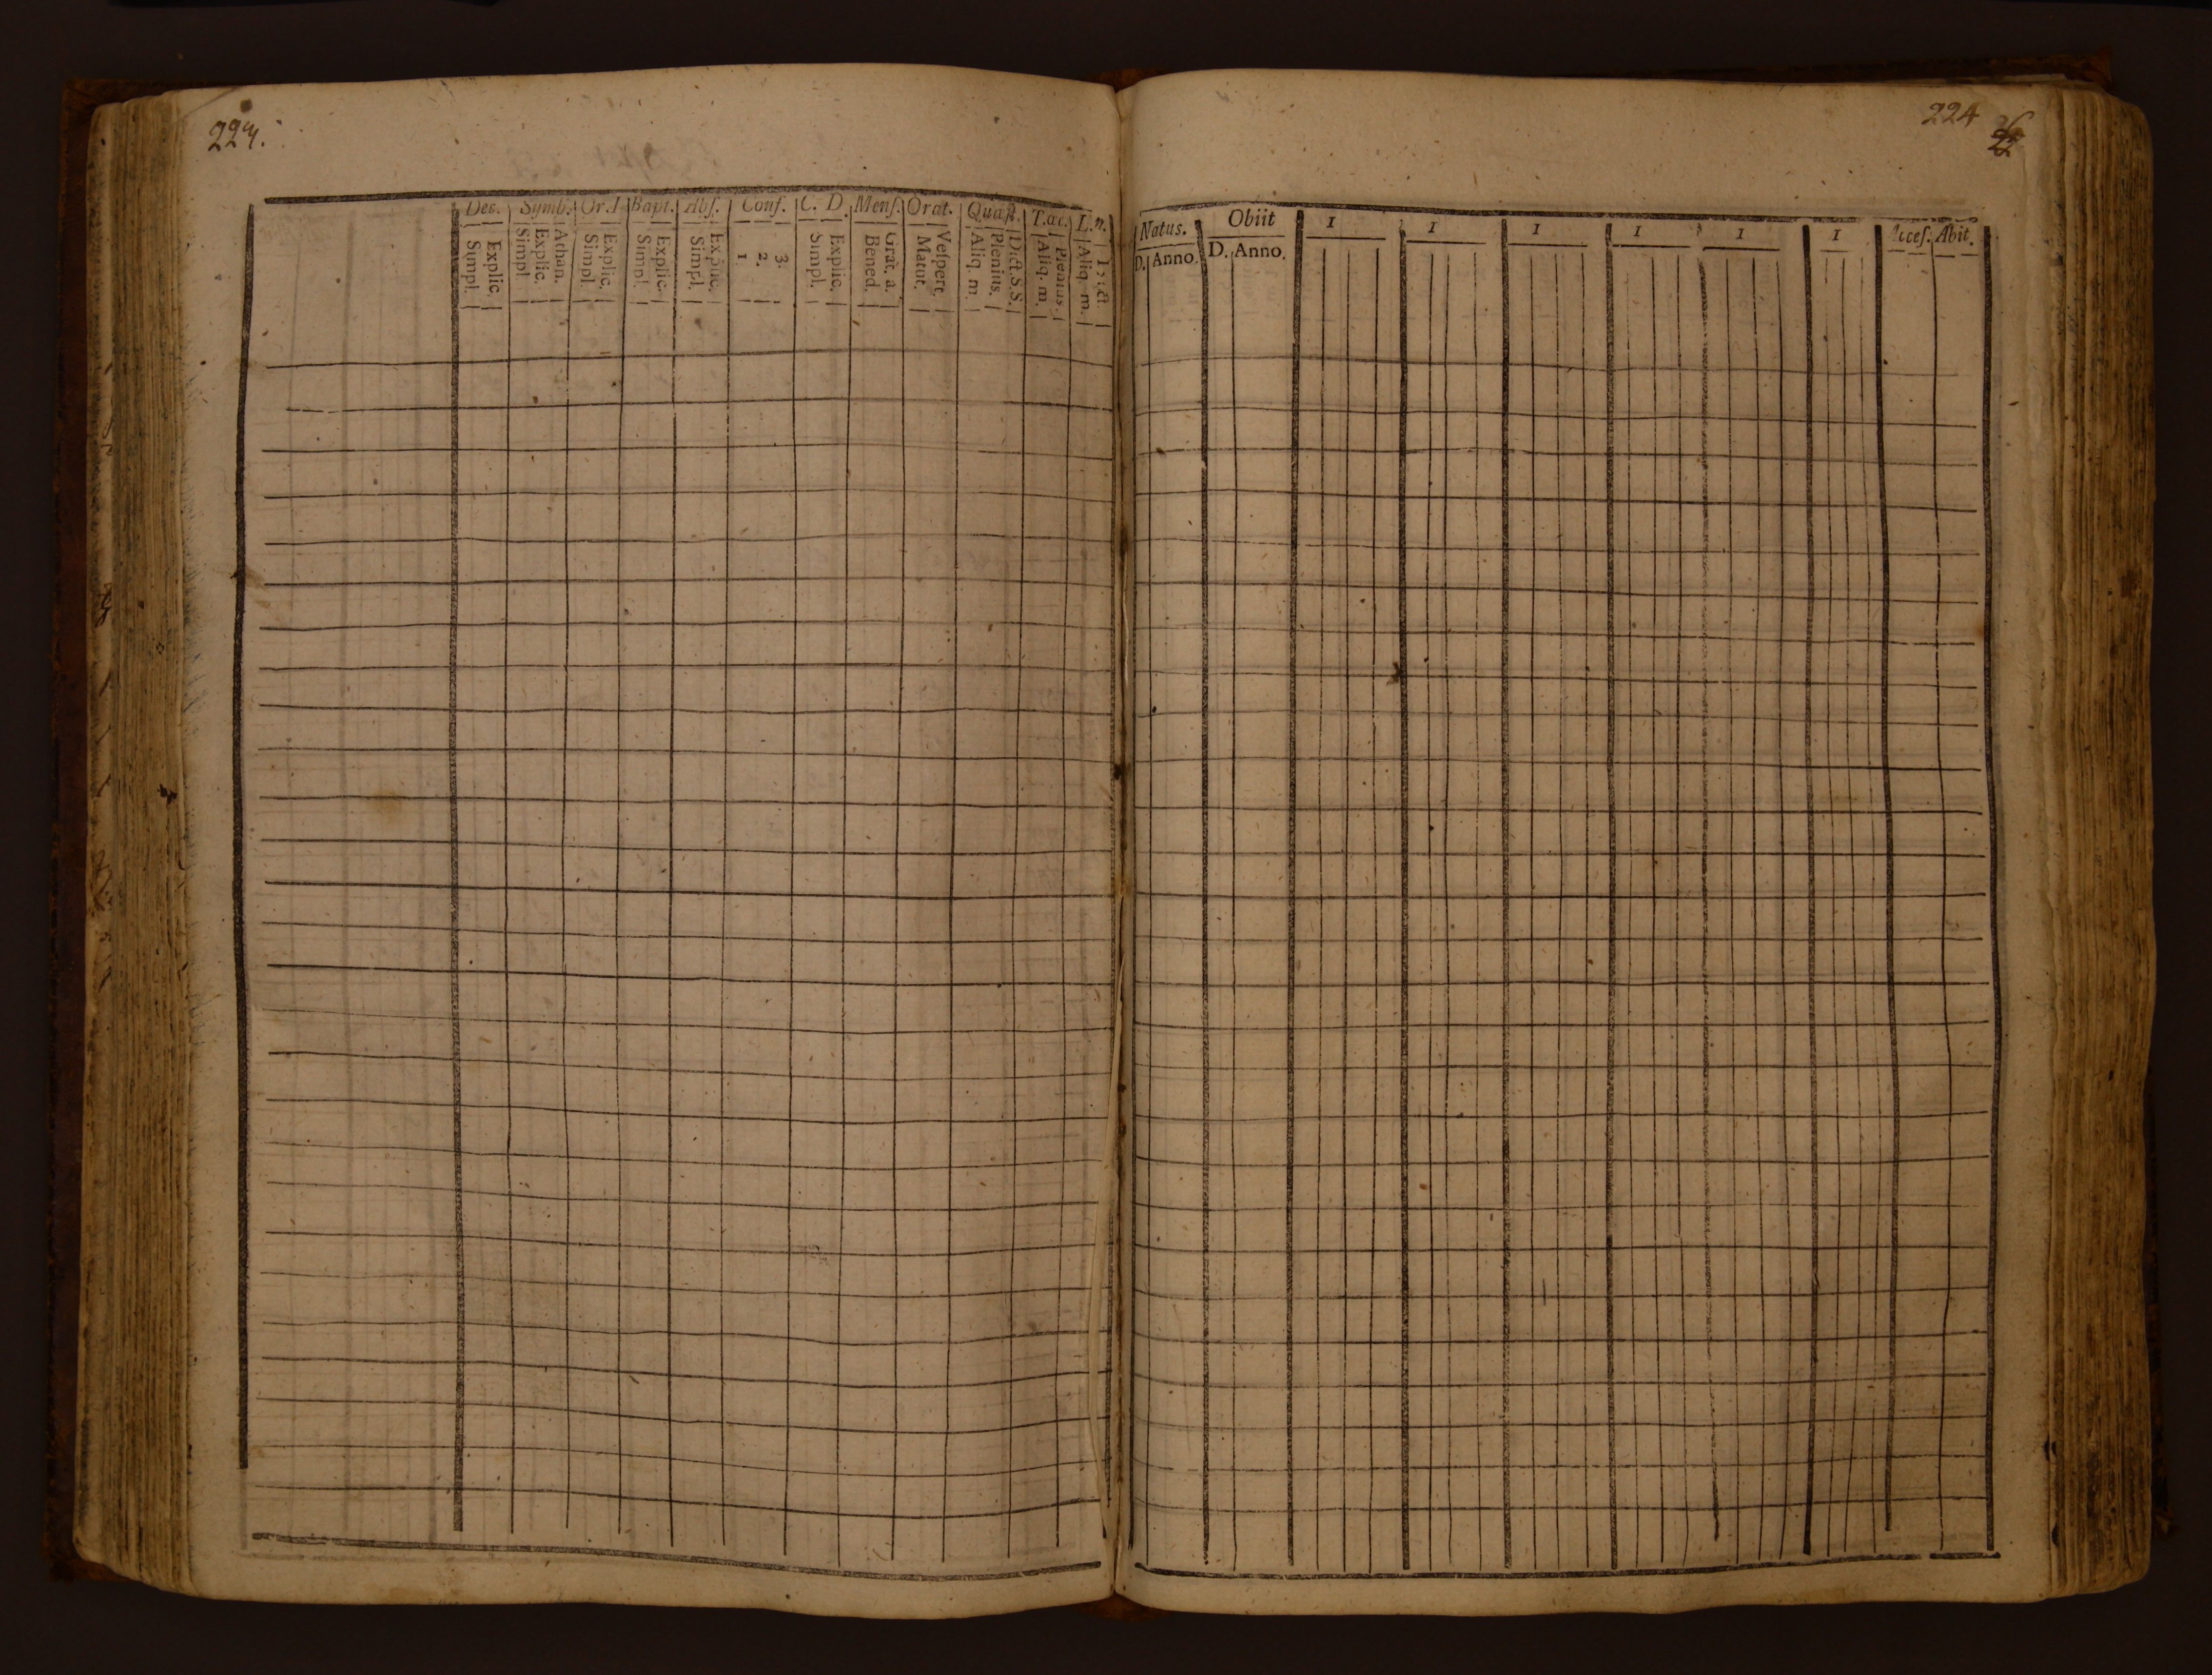 224.
Dec. Symb. Or.D Bapt. Abſ. Conf. C. D. Menſ. Orat. Quæſt. T.æc. L.n.
Simpl. Explic. Simpl. Explic. Athan. Simpl. Explic. Simpl. Explic. Simpl. Explic. 1. 2. 3. Simpl. Explic. Bened. Grat. a. Matut. Veſpert. Aliq. m. Plenius. Dict.S.S. Aliq. m. Plenius. Aliq. m.
224
Natus. Obiit I I I I I I Acceſ. Abit.
D. Anno. D. Anno.